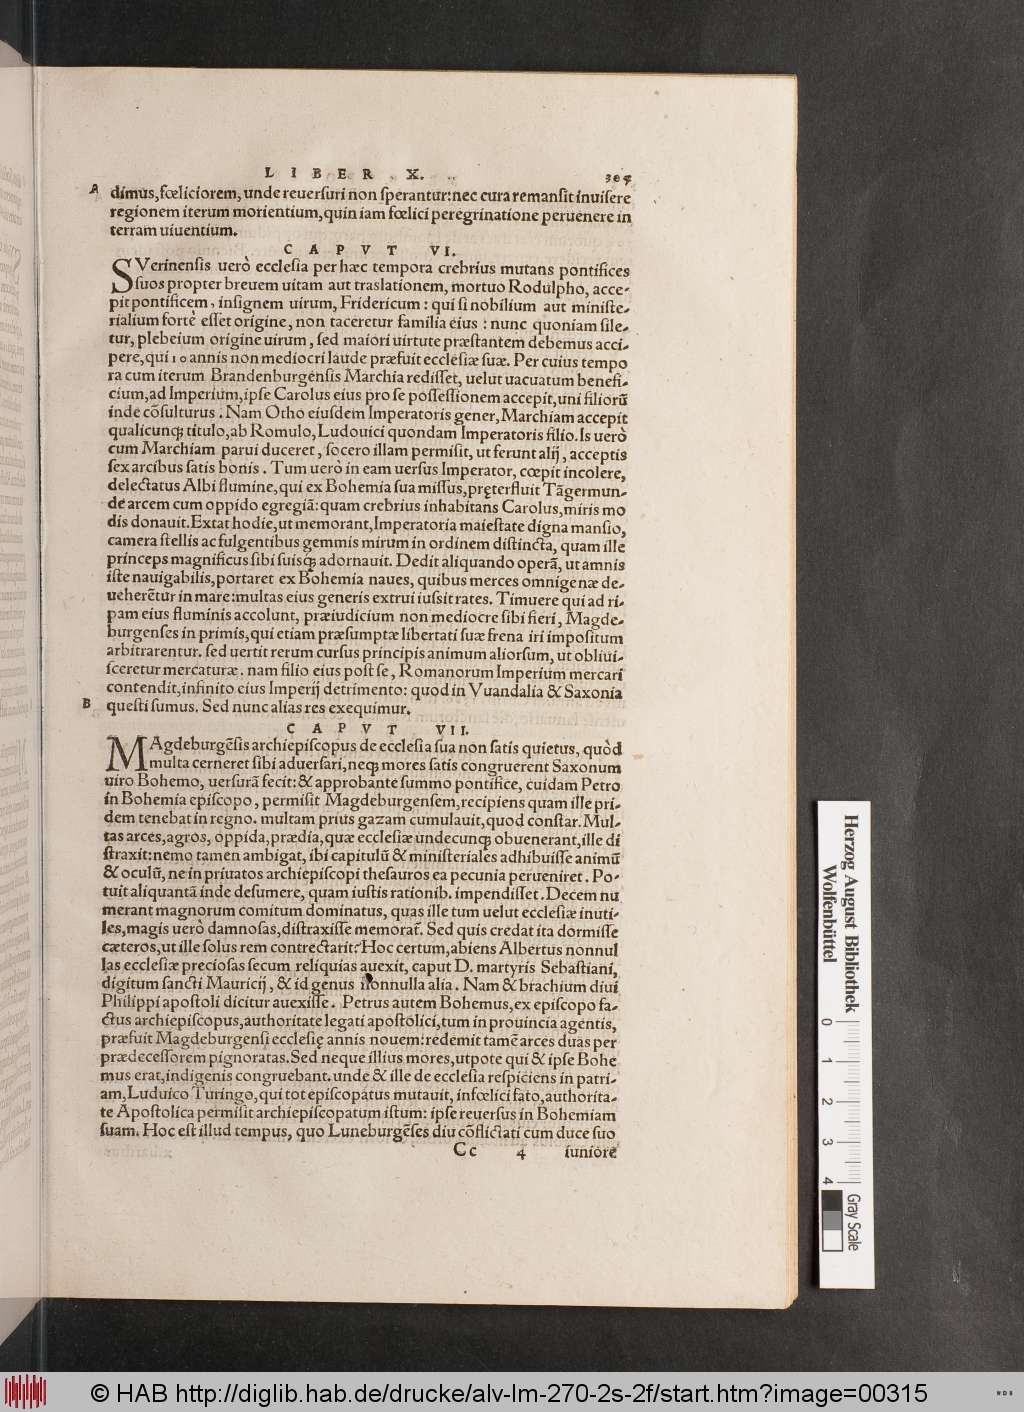 LIBER X. 304
A dimus, fœliciorem, unde reuersuri non sperantur: nec cura remansit inuisere
regionem iterum morientium, quin iam fœlici peregrinatione peruenere in
terram uiuentium.
CAPVT VI.
SVerinensis uerò ecclesia per hæc tempora crebrius mutans pontifices
suos propter breuem uitam aut traslationem, mortuo Rodulpho, acce-
pit pontificem, insignem uirum, Fridericum: qui si nobilium aut ministe-
rialium fortè esset origine, non taceretur familia eius: nunc quoniam sile-
tur, plebeium origine uirum, sed maiori uirtute præstantem debemus acci-
pere, qui 10 annis non mediocri laude præfuit ecclesiæ suæ. Per cuius tempo
ra cum iterum Brandenburgensis Marchia redisset, uelut uacuatum benefi-
cium, ad Imperium, ipse Carolus eius pro se possessionem accepit, uni filiorũ
inde cõsulturus. Nam Otho eiusdem Imperatoris gener, Marchiam accepit
qualicunq; titulo, ab Romulo, Ludouici quondam Imperatoris filio. Is uerò
cum Marchiam parui duceret, socero illam permisit, ut ferunt alij, acceptis
sex arcibus satis bonis. Tum uerò in eam uersus Imperator, cœpit incolere,
delectatus Albi flumine, qui ex Bohemia sua missus, pręterfluit Tãgermun-
de arcem cum oppido egregiã: quam crebrius inhabitans Carolus, miris mo
dis donauit. Extat hodie, ut memorant, Imperatoria maiestate digna mansio,
camera stellis ac fulgentibus gemmis mirum in ordinem distincta, quam ille
princeps magnificus sibi suisq; adornauit. Dedit aliquando operã, ut amnis
iste nauigabilis, portaret ex Bohemia naues, quibus merces omnigenæ de-
ueherẽtur in mare: multas eius generis extrui iussit rates. Timuere qui ad ri-
pam eius fluminis accolunt, præiudicium non mediocre sibi fieri, Magde-
burgenses in primis, qui etiam præsumptæ libertati suæ frena iri impositum
arbitrarentur. sed uertit rerum cursus principis animum aliorsum, ut obliui-
sceretur mercaturæ. nam filio eius post se, Romanorum Imperium mercari
contendit, infinito eius Imperij detrimento: quod in Vuandalia & Saxonia
B questi sumus. Sed nunc alias res exequimur.
CAPVT VII.
MAgdeburgẽsis archiepiscopus de ecclesia sua non satis quietus, quòd
multa cerneret sibi aduersari, neq; mores satis congruerent Saxonum
uiro Bohemo, uersurã fecit: & approbante summo pontifice, cuidam Petro
in Bohemia episcopo, permisit Magdeburgensem, recipiens quam ille pri-
dem tenebat in regno. multam prius gazam cumulauit, quod constar. Mul-
tas arces, agros, oppida, prædia, quæ ecclesiæ undecunq; obuenerant, ille di
straxit: nemo tamen ambigat, ibi capitulũ & ministeriales adhibuisse animũ
& oculũ, ne in priuatos archiepiscopi thesauros ea pecunia perueniret. Po-
tuit aliquantã inde desumere, quam iustis rationib. impendisset. Decem nu
merant magnorum comitum dominatus, quas ille tum uelut ecclesiæ inuti-
les, magis uerò damnosas, distraxisse memorat̃. Sed quis credat ita dormisse
cæteros, ut ille solus rem contrectarit? Hoc certum, abiens Albertus nonnul
las ecclesiæ preciosas secum reliquias auexit, caput D. martyris Sebastiani,
digitum sancti Mauricij, & id genus nonnulla alia. Nam & brachium diui
Philippi apostoli dicitur auexisse. Petrus autem Bohemus, ex episcopo fa-
ctus archiepiscopus, authoritate legati apostolici, tum in prouincia agentis,
præfuit Magdeburgensi ecclesię annis nouem: redemit tamẽ arces duas per
prædecessorem pignoratas. Sed neque illius mores, utpote qui & ipse Bohe
mus erat, indigenis congruebant. unde & ille de ecclesia respiciens in patri-
am, Luduico Turingo, qui tot episcopatus mutauit, infœlici fato, authorita-
te Apostolica permisit archiepiscopatum istum: ipse reuersus in Bohemiam
suam. Hoc est illud tempus, quo Luneburgẽses diu cõflictati cum duce suo
Cc 4 iuniore
Herzog August Bibliothek
Wolfenbüttel
0 1 2 3 4
Gray Scale
© HAB http://diglib.hab.de/drucke/alv-lm-270-2s-2f/start.htm?image=00315
WDB